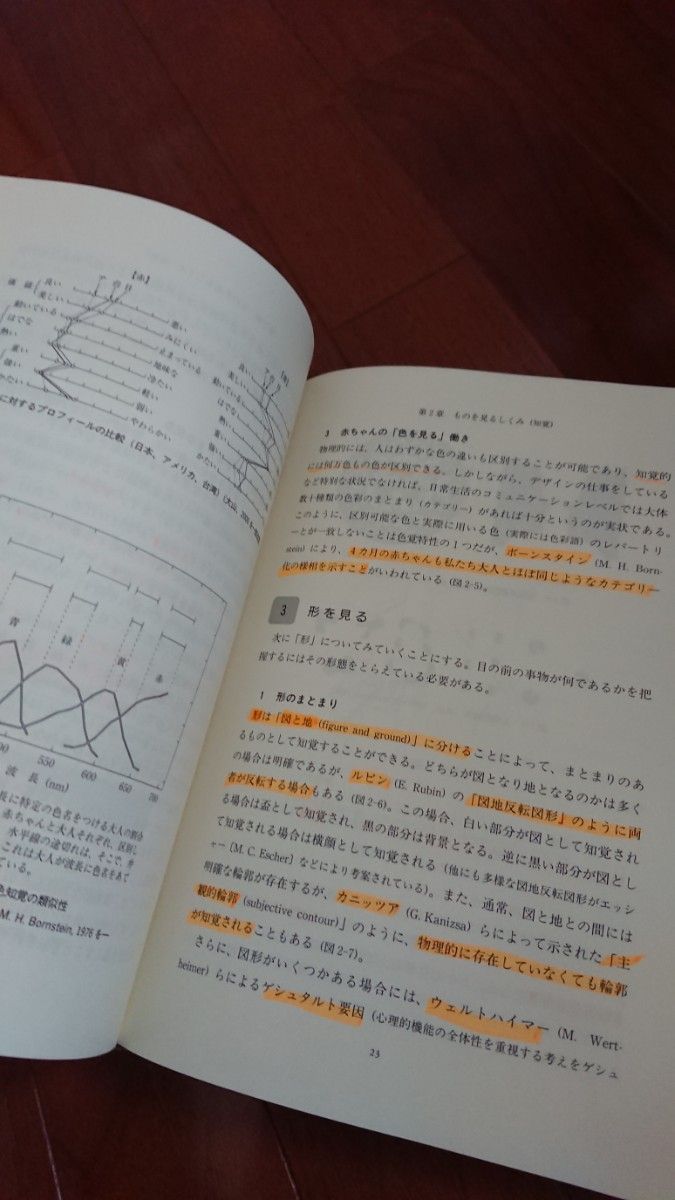 【赤】
ア 台 日
価値
良い
悪い
美しい
みにくい
動いている
止まっている
はでな
地味な
熱い
冷たい
重い
軽い
強い
弱い
かたい
やわらかい
良い
美しい
動いている
はでな
熱い
重い
強い
かたい
に対するプロフィールの比較（日本、アメリカ、台湾）（大山,
青
緑
黄
赤
550
600
650
700
波 長 (nm)
長に特定の色名をつける大人の割合
赤ちゃんと大人それぞれ、区別し
水平線の途切れは、そこで、弁
これは大人が波長に色名をあて
ている。
色知覚の類似性
M. H. Bornstein, 1976を一
第2章 ものを見るしくみ（知覚）
3 赤ちゃんの「色を見る」働き
物理的には、人はわずかな色の違いも区別することが可能であり、知覚的
には何万色もの色が区別できる。しかしながら、デザインの仕事をしている
など特別な状況でなければ、日常生活のコミュニケーションレベルでは大体
数十種類の色彩のまとまり（カテゴリー）があれば十分というのが実状である。
このように、区別可能な色と実際に用いる色（実際には色彩語）のレパートリ
ーとが一致しないことは色覚特性の1つだが、ボーンスタイン（M. H. Born-
stein）により、4カ月の赤ちゃんも私たち大人とほぼ同じようなカテゴリー
化の様相を示すことがいわれている（図2-5）。
3 形を見る
次に「形」についてみていくことにする。目の前の事物が何であるかを把
握するにはその形態をとらえている必要がある。
1 形のまとまり
形は「図と地（figure and ground）」に分けることによって、まとまりのあ
るものとして知覚することができる。どちらが図となり地となるのかは多く
の場合は明確であるが、ルビン（E. Rubin）の「図地反転図形」のように両
者が反転する場合もある（図2-6）。この場合、白い部分が図として知覚され
る場合は盃として知覚され、黒の部分は背景となる。逆に黒い部分が図とし
て知覚される場合は横顔として知覚される（他にも多様な図地反転図形がエッシ
ャー（M. C. Escher）などにより考案されている）。また、通常、図と地との間には
明確な輪郭が存在するが、カニッツア（G. Kanizsa）らによって示された「主
観的輪郭（subjective contour）」のように、物理的に存在していなくても輪郭
が知覚されることもある（図2-7）。
さらに、図形がいくつかある場合には、ウェルトハイマー（M. Wert-
heimer）らによるゲシュタルト要因（心理的機能の全体性を重視する考えをゲシュ
23